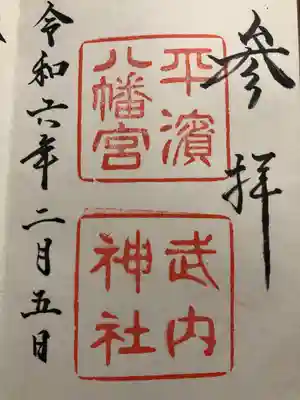 參拝
平濱
八幡宮
武内
神社
令和六年二月五日